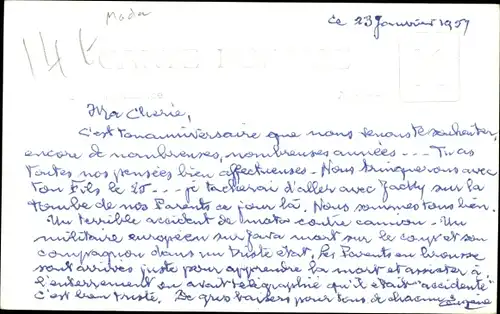 Moda
14 t
Ce 23 Janvier 1959
CARTE POSTALE
Ma Cherie,
C'est ton anniversaire que nous venons te souhaiter,
encore de nombreuses, nombreuses années --- Tu as
toutes nos pensées bien affectueuses - Nous trinquerons avec
ton Fils le 25 --- je tacherai d'aller avec Jacky sur la
tombe de nos Parents ce jour là. Nous sommes tous bien.
Un terrible accident de moto contre camion - Un
militaire européen sur Java mort sur le coup et son
compagnon dans un triste état, les Parents en brousse
sont arrivés juste pour apprendre la mort et assister à
l'enterrement on avait télégraphié qu'il était "accidenté"
C'est bien triste. De gros baisers pour tous de chacun Eugénie